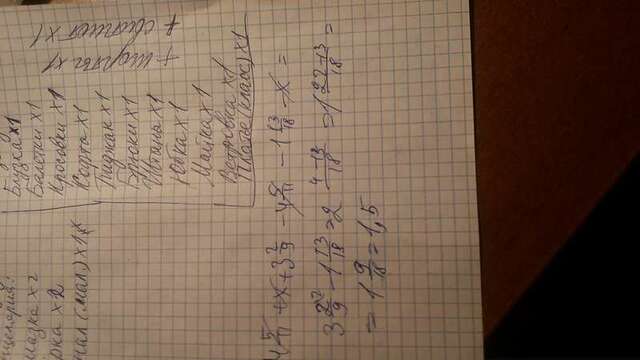 мазка x2
рка x2
нал (мал.) x1
Блузка x1
Балетки x1
Кросовки x1
Кофта x1
Пиджак x1
Брюки x1
Штаны x1
Юбка x1
Майка x1
Ветровка x1
Платье (класс) x1
+ шорты x1
+ свитшот x1
4 5/11 + x + 3 2/9 - 4 5/11 - 1 13/18 - x =
3 2/9 - 1 13/18 = 2 4-13/18 = 1 22-13/18 =
= 1 9/18 = 1,5